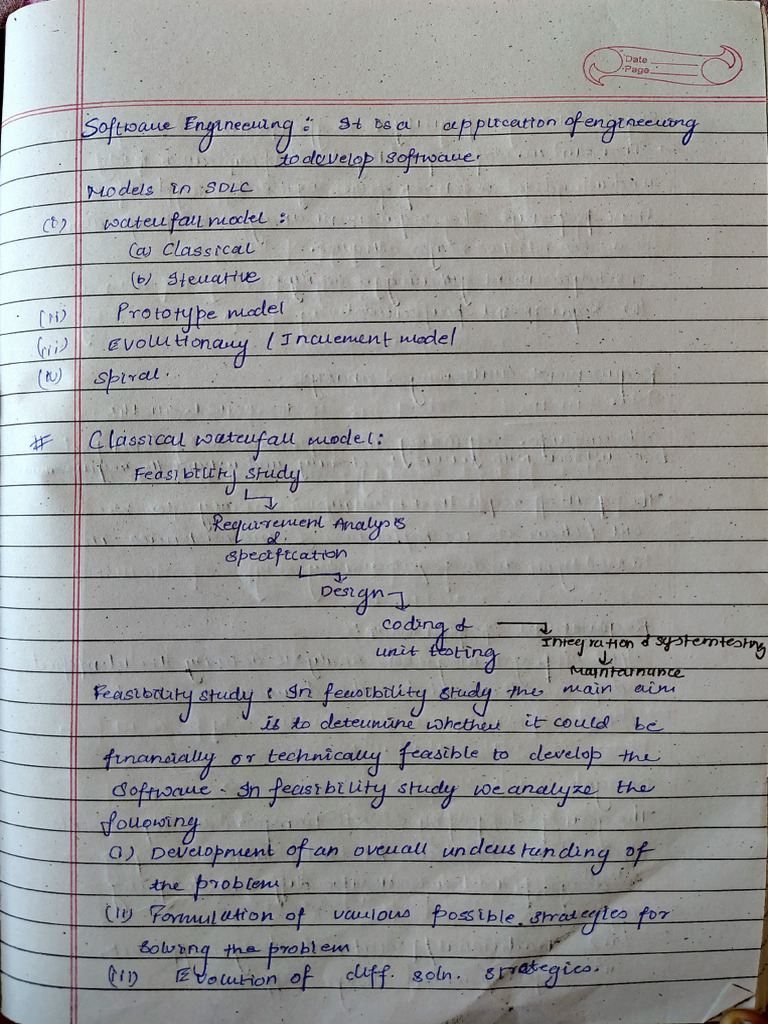 Date
Page
Software Engineering : It is a application of engineering
to develop software.
Models in SDLC
(i) Waterfall model :
(a) Classical
(b) Iterative
(ii) Prototype model
(iii) Evolutionary / Increment model
(iv) Spiral.
# Classical waterfall model :
Feasibility Study
Requirement Analysis
&
Specification
Design
Coding &
unit testing
Integration & system testing
Maintainance
Feasibility study : In feasibility study the main aim
is to determine whether it could be
financially or technically feasible to develop the
Software. In feasibility study we analyze the
following
(i) Development of an overall understanding of
the problem
(ii) Formulation of various possible strategies for
solving the problem
(iii) Evolution of diff. soln. strategies.